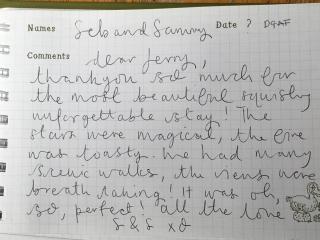 Names Seb and Sammy Date ? DAAF
Comments dear Jerry,
thankyou so much for
the most beautiful squishy
unforgettable stay! The
stars were magical, the fire
was toasty. We had many
scenic walks, the views were
breath taking! It was oh,
so, perfect! all the love
S & S xo